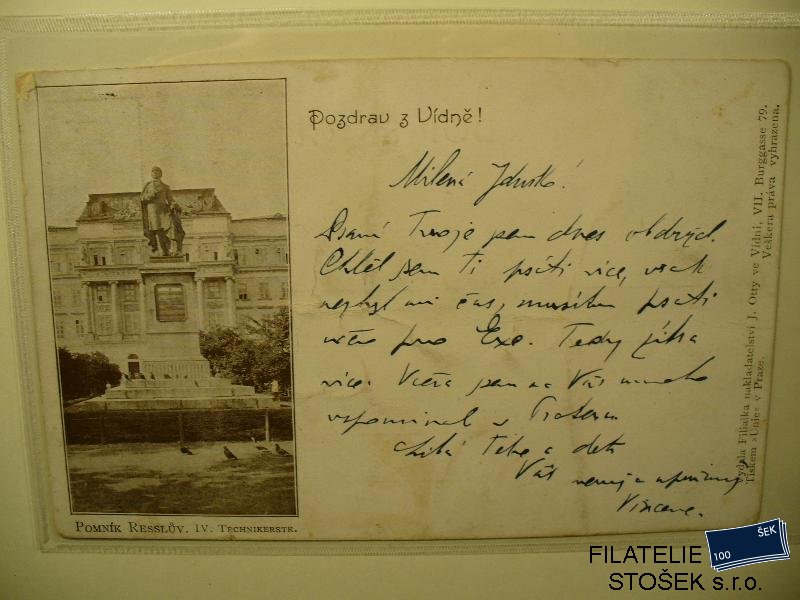 Pozdrav z Vídně!
Milená
Psaní Tvoje jsem dnes obdržel.
Chtěl jsem Ti psáti více, však
nezbyl mi čas, musítem psáti
pro Exc. Tedy zítra
více. Včera jsem na Vás mnoho
vzpomínal v
líbá Tebe a děti
Váš
Vincenc.
POMNÍK RESSLŮV. IV. TECHNIKERSTR.
Vydala Filialka nakladatelství J. Otty ve Vídni, VII. Burggasse 79.
Tiskem »Unie« v Praze. Veškera práva vyhrazena.
FILATELIE
STOŠEK s.r.o.
100 ŠEK